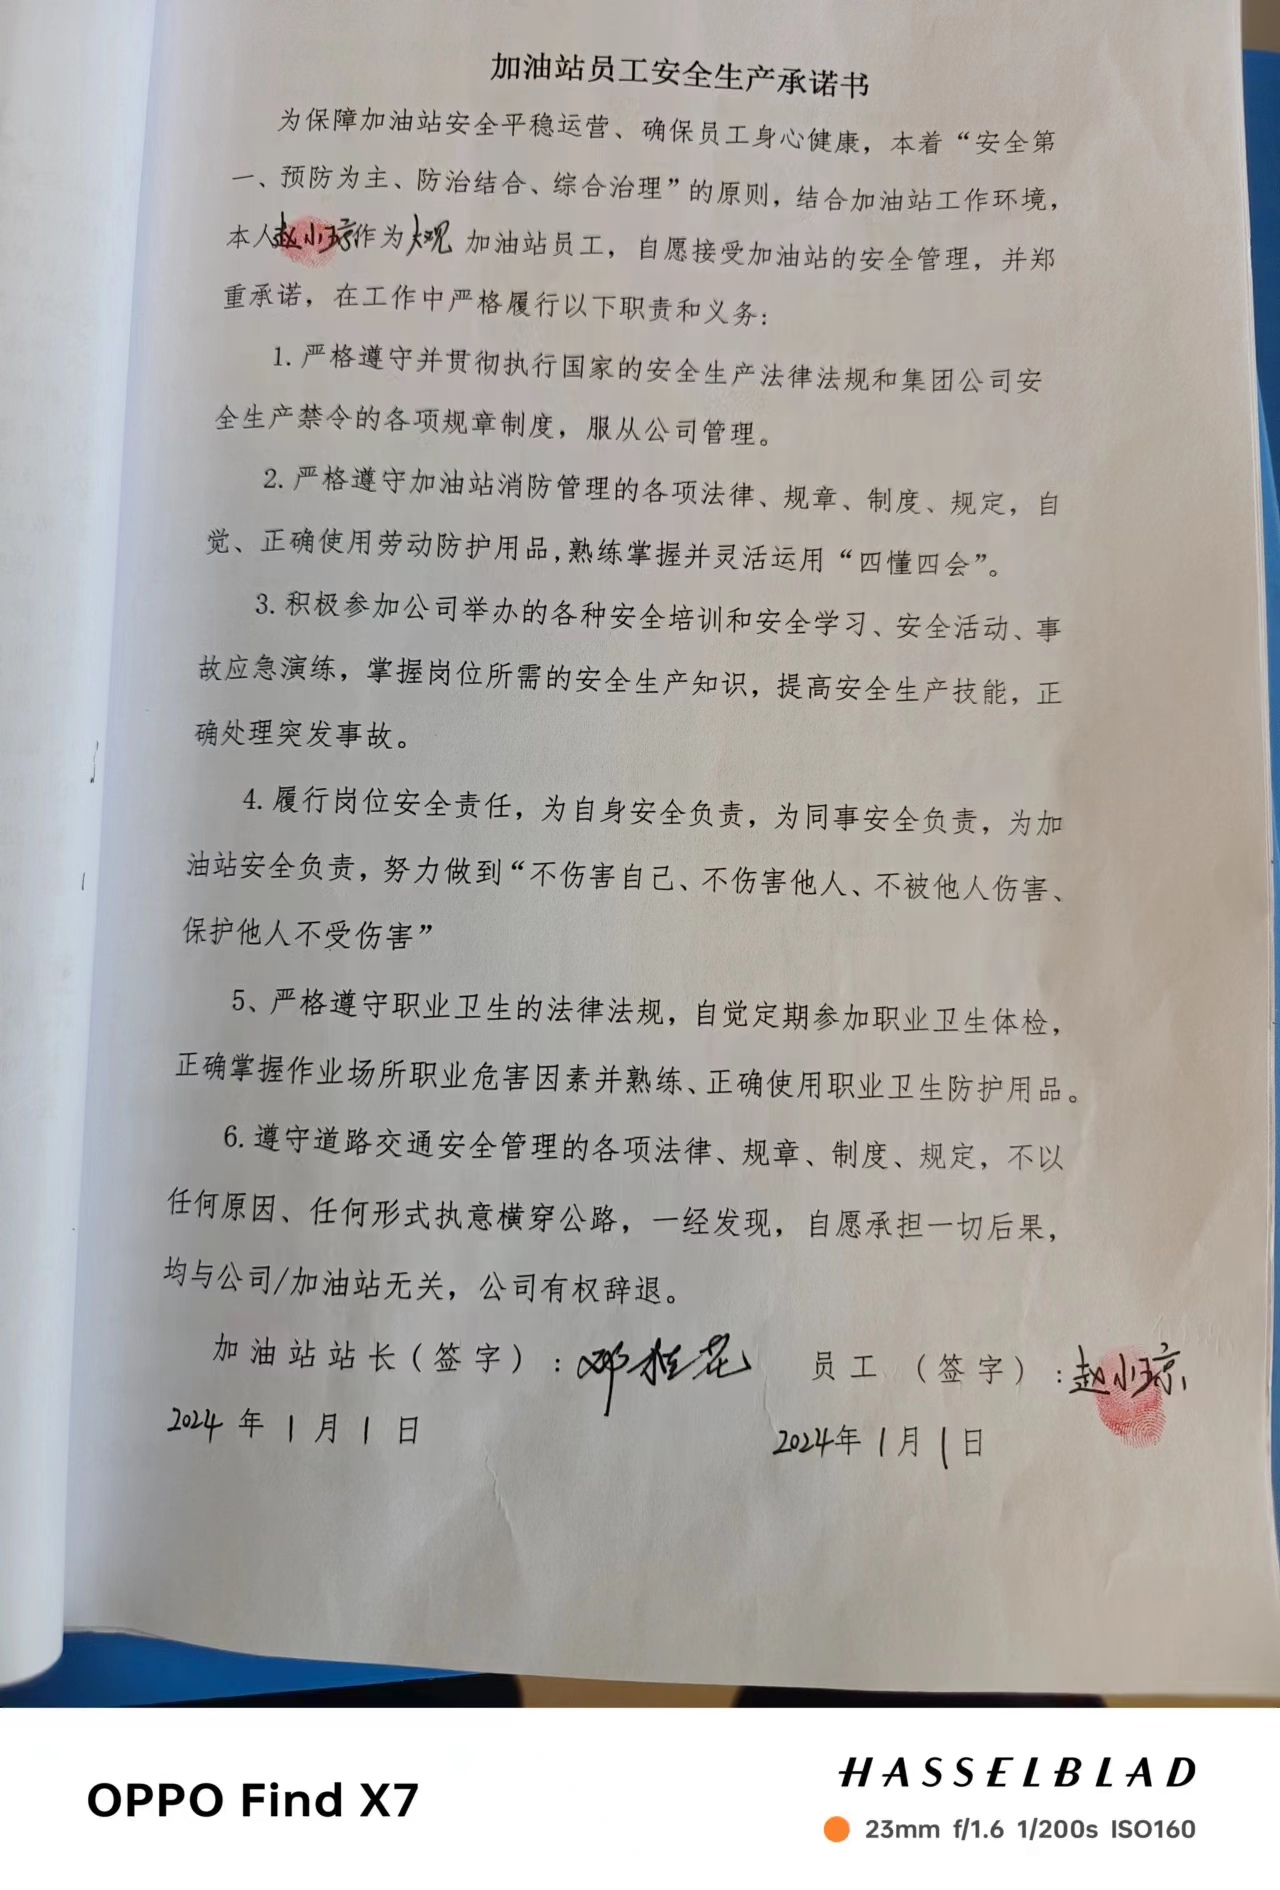 加油站员工安全生产承诺书
为保障加油站安全平稳运营、确保员工身心健康，本着“安全第
一、预防为主、防治结合、综合治理”的原则，结合加油站工作环境，
本人赵小琼作为大观加油站员工，自愿接受加油站的安全管理，并郑
重承诺，在工作中严格履行以下职责和义务：
1.严格遵守并贯彻执行国家的安全生产法律法规和集团公司安
全生产禁令的各项规章制度，服从公司管理。
2.严格遵守加油站消防管理的各项法律、规章、制度、规定，自
觉、正确使用劳动防护用品,熟练掌握并灵活运用“四懂四会”。
3.积极参加公司举办的各种安全培训和安全学习、安全活动、事
故应急演练，掌握岗位所需的安全生产知识，提高安全生产技能，正
确处理突发事故。
4.履行岗位安全责任，为自身安全负责，为同事安全负责，为加
油站安全负责，努力做到“不伤害自己、不伤害他人、不被他人伤害、
保护他人不受伤害”
5、严格遵守职业卫生的法律法规，自觉定期参加职业卫生体检，
正确掌握作业场所职业危害因素并熟练、正确使用职业卫生防护用品。
6.遵守道路交通安全管理的各项法律、规章、制度、规定，不以
任何原因、任何形式执意横穿公路，一经发现，自愿承担一切后果，
均与公司/加油站无关，公司有权辞退。
加油站站长（签字）：邓桂花 员工（签字）：赵小琼
2024年1月1日 2024年1月1日
OPPO Find X7
HASSELBLAD
23mm f/1.6 1/200s ISO160